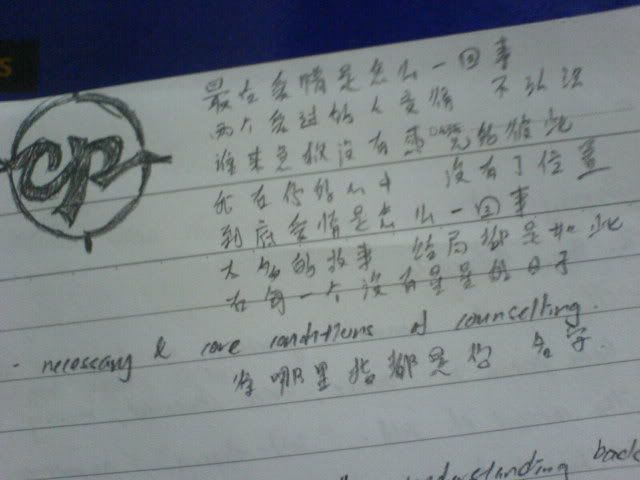 CP
最在爱情是怎么一回事
两个爱过的人变候 不认识
谁来急救没有感觉的彼此
我在你的心中 没有了位置
到底爱情是怎么一回事
太多的故事 结局都是如此
在每一个没有星星的日子
- necessary & core conditions of counselling.
哪里 都是你 名字
understanding back